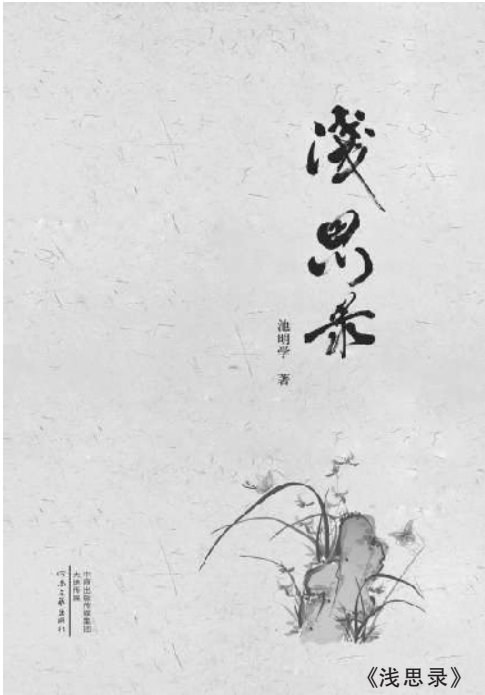 淺思录
池明学 著
中原出版传媒集团
大地传媒
河南文艺出版社
《浅思录》